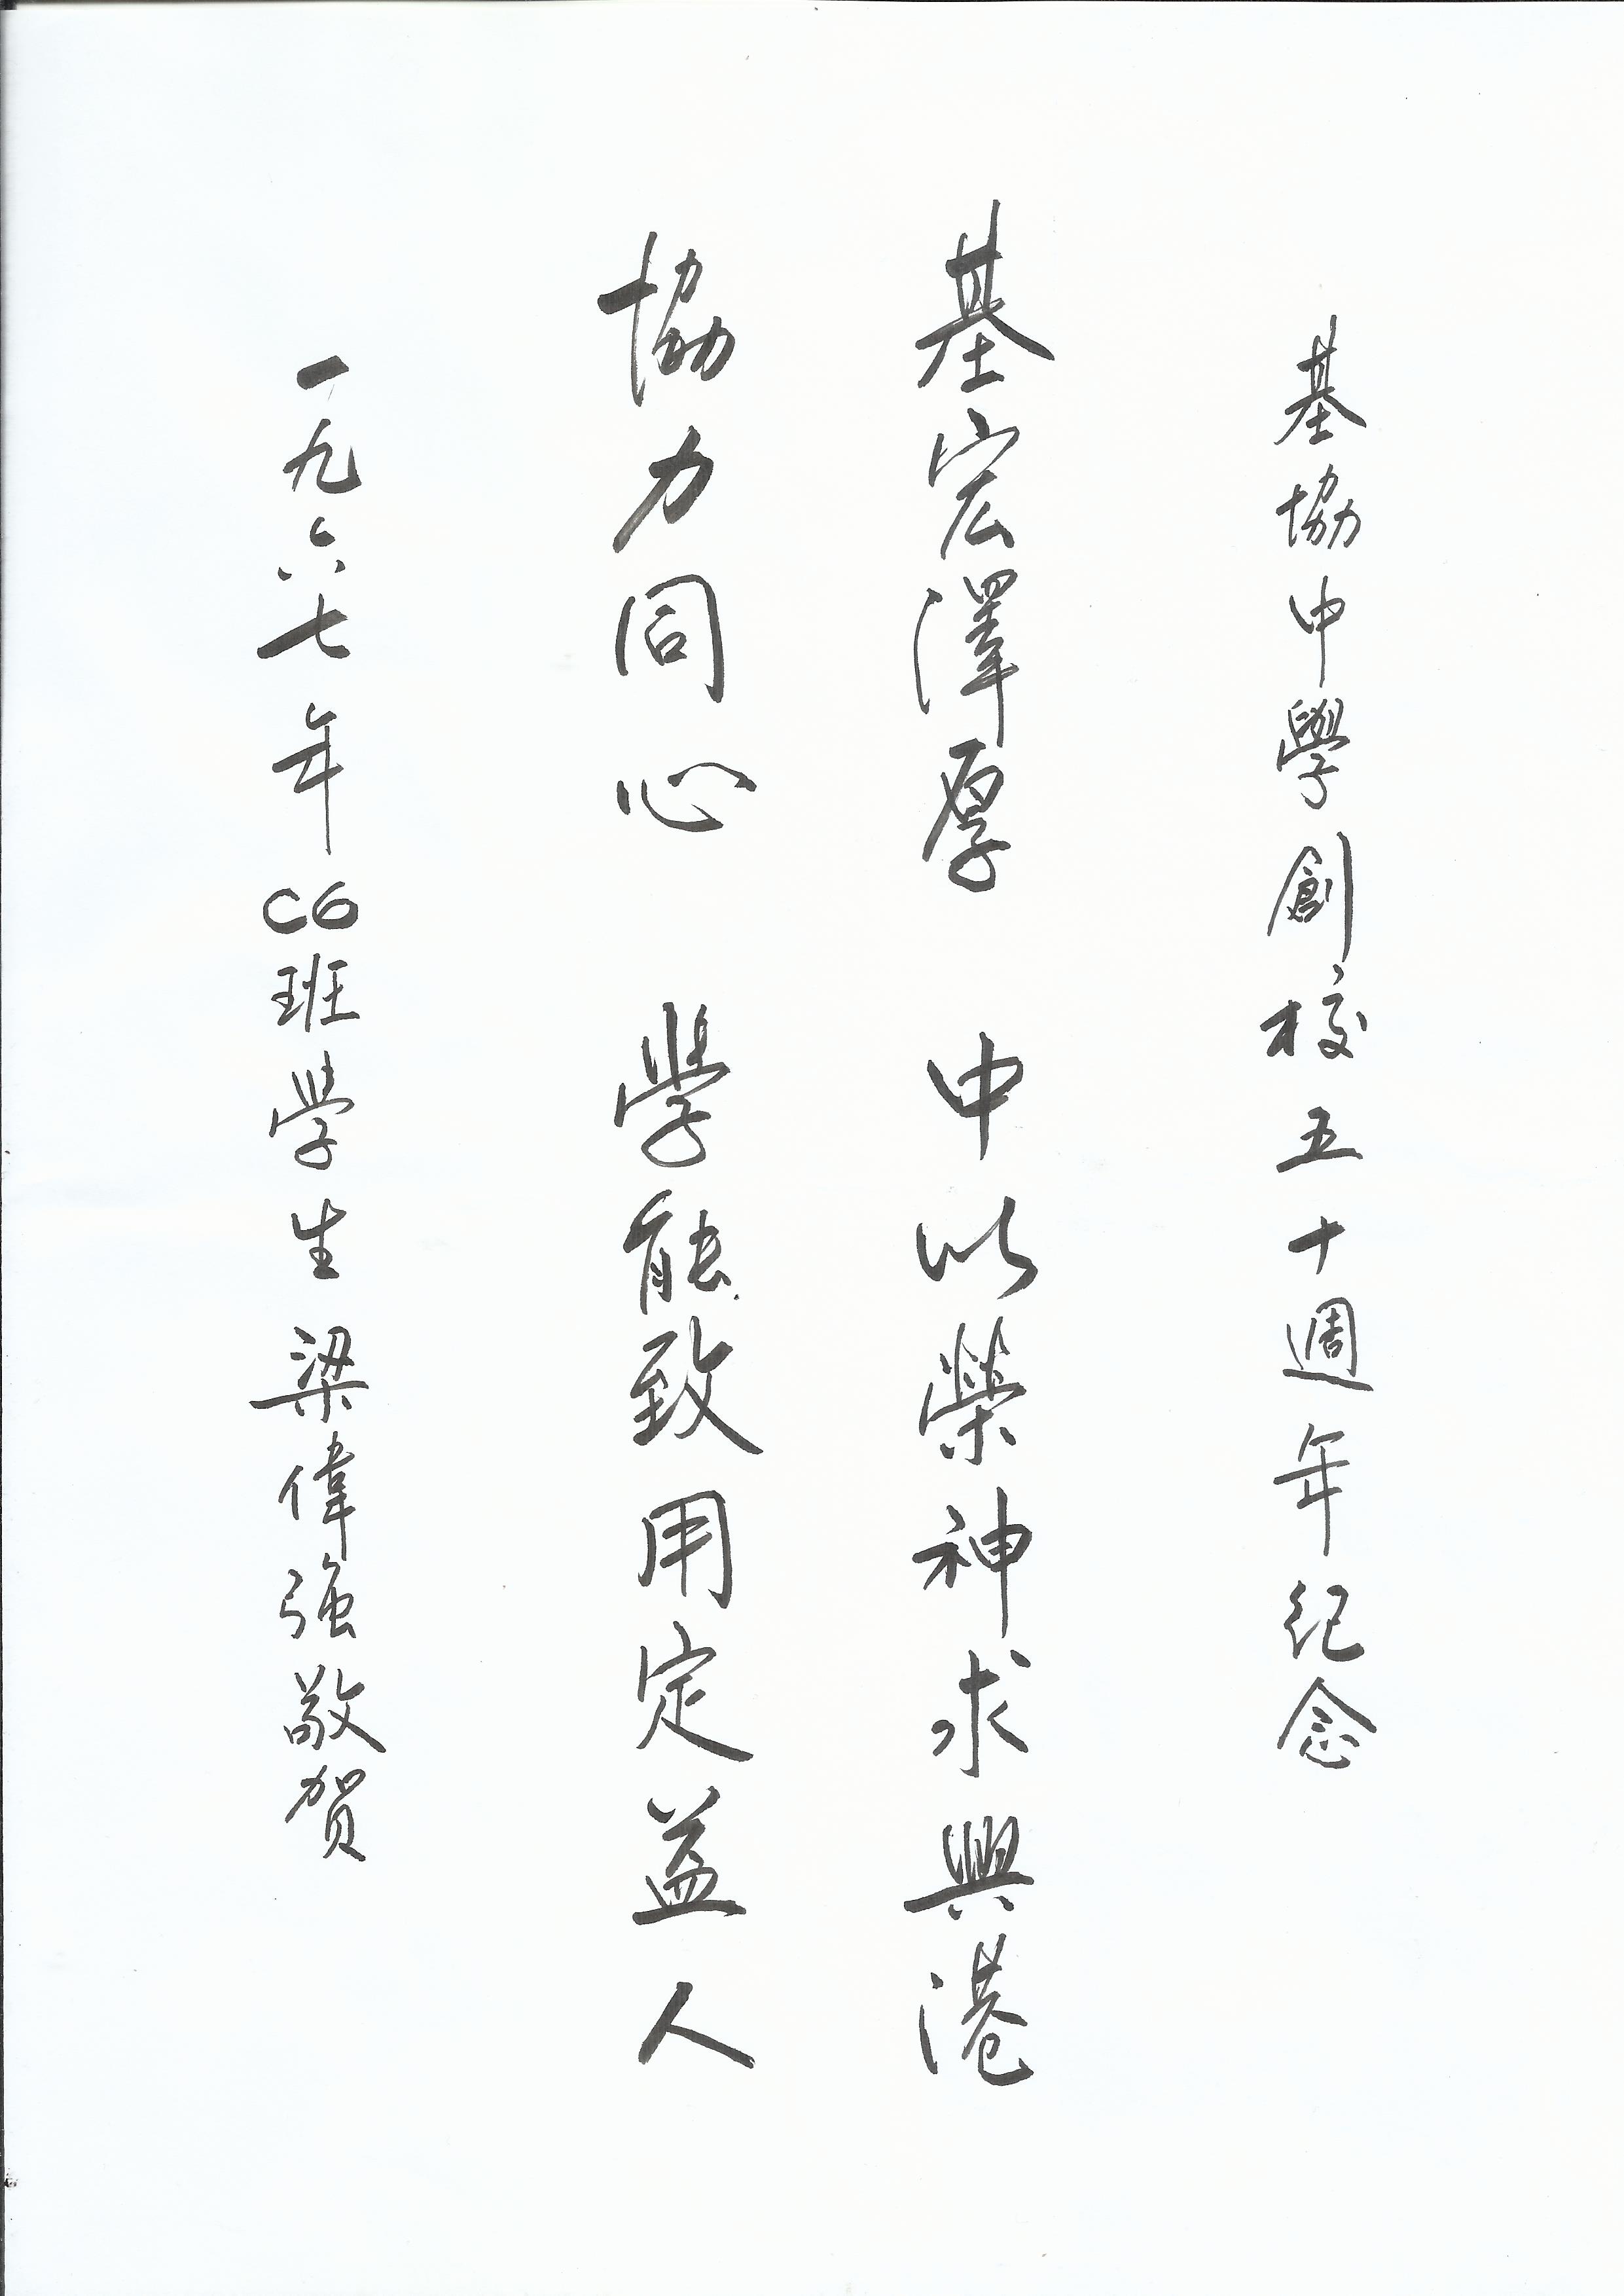 基協中學創校五十週年紀念
基宏澤厚 中以榮神求興港
協力同心 學能致用定益人
一九六七年C6班學生梁偉強敬賀